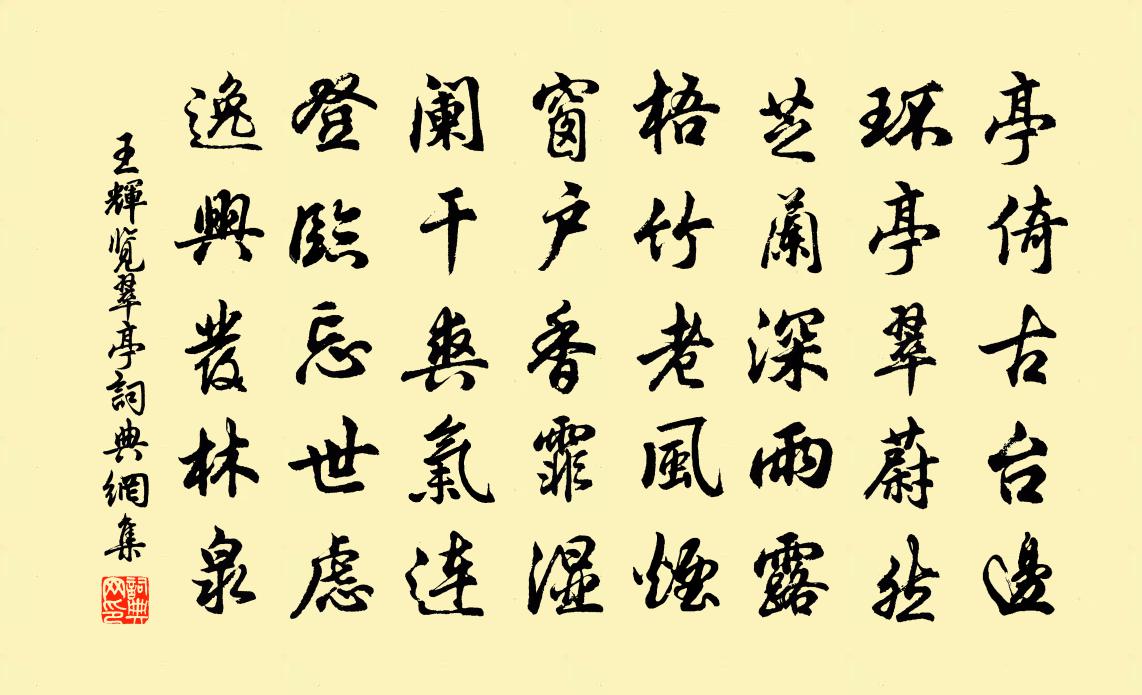 亭倚古台邊
环亭翠蔚然
芝蘭深雨露
梧竹老風煙
窗户香霏湿
闌干爽氣連
登臨忘世慮
逸興發林泉
王輝覽翠亭詞典網集
詞典网印